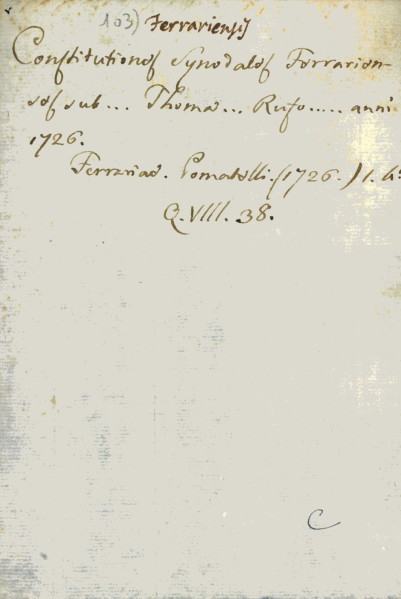 103) Ferrariensis
Constitutiones Synodales Ferrarien-
ses sub... Thoma... Rufo..... anni
1726.
Ferrariae. Pomatelli. (1726.) 1. 4º
Q. VIII. 38.
C